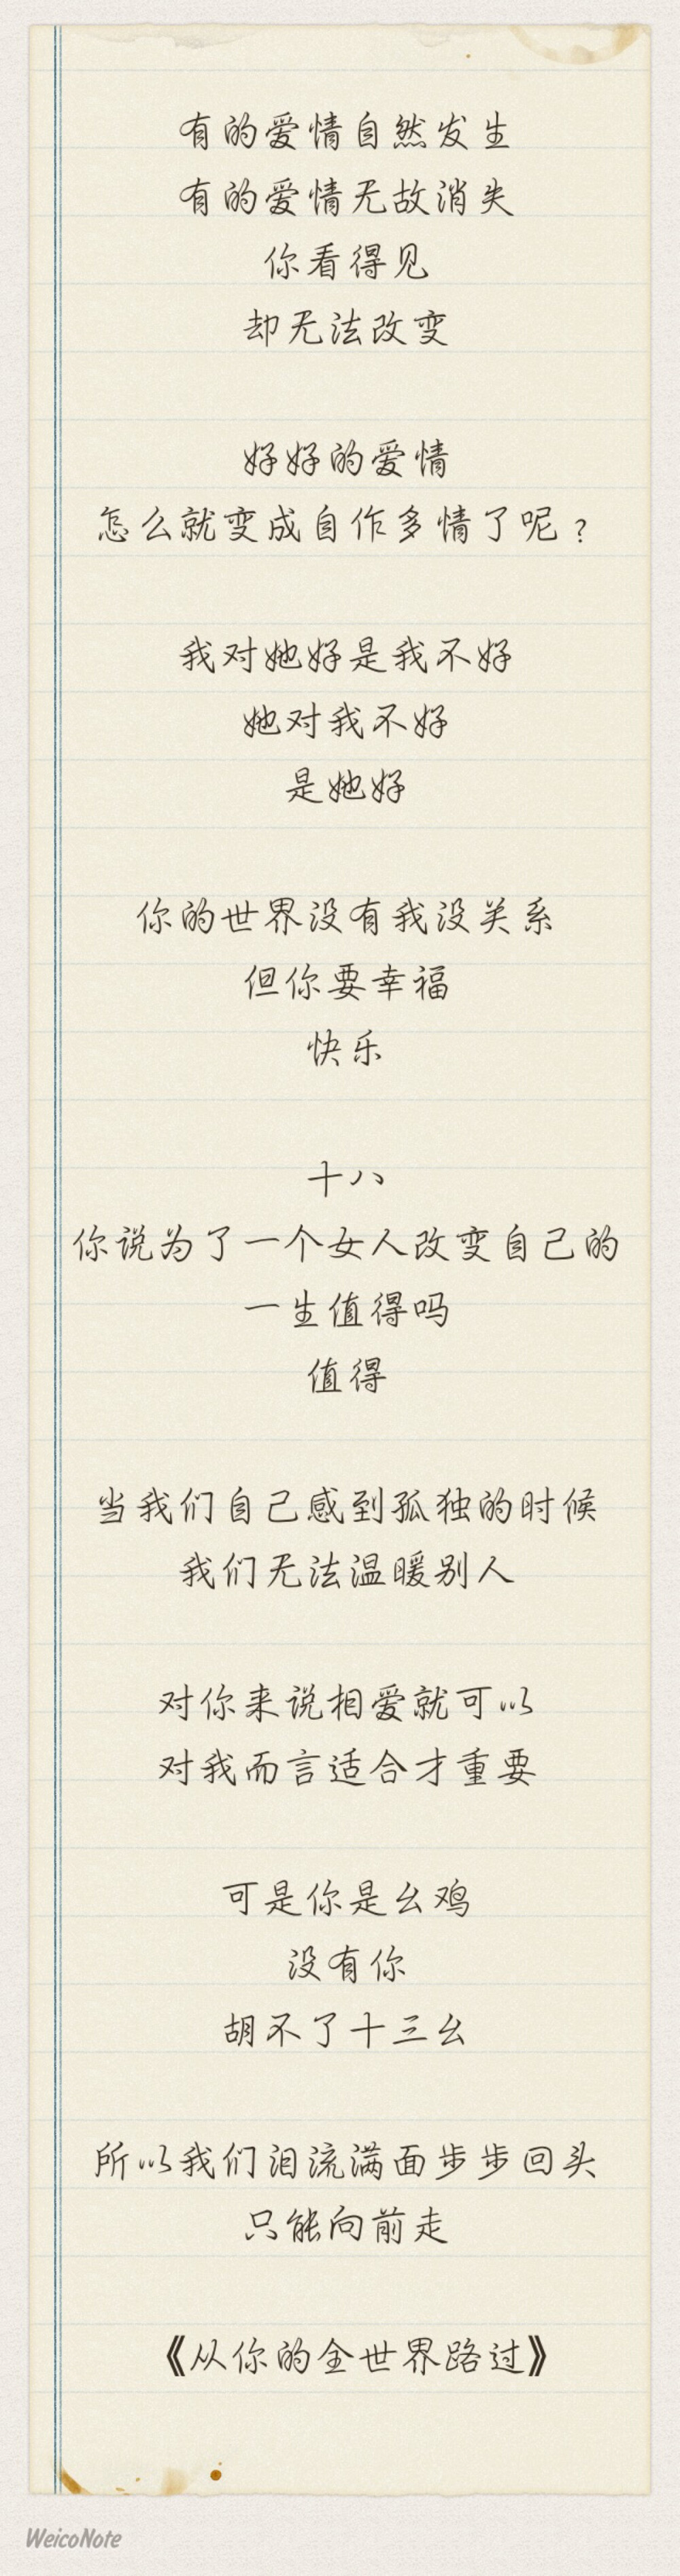 有的爱情自然发生
有的爱情无故消失
你看得见
却无法改变
好好的爱情
怎么就变成自作多情了呢？
我对她好是我不好
她对我不好
是她好
你的世界没有我没关系
但你要幸福
快乐
十八
你说为了一个女人改变自己的
一生值得吗
值得
当我们自己感到孤独的时候
我们无法温暖别人
对你来说相爱就可以
对我而言适合才重要
可是你是幺鸡
没有你
胡不了十三幺
所以我们泪流满面步步回头
只能向前走
《从你的全世界路过》
WeicoNote